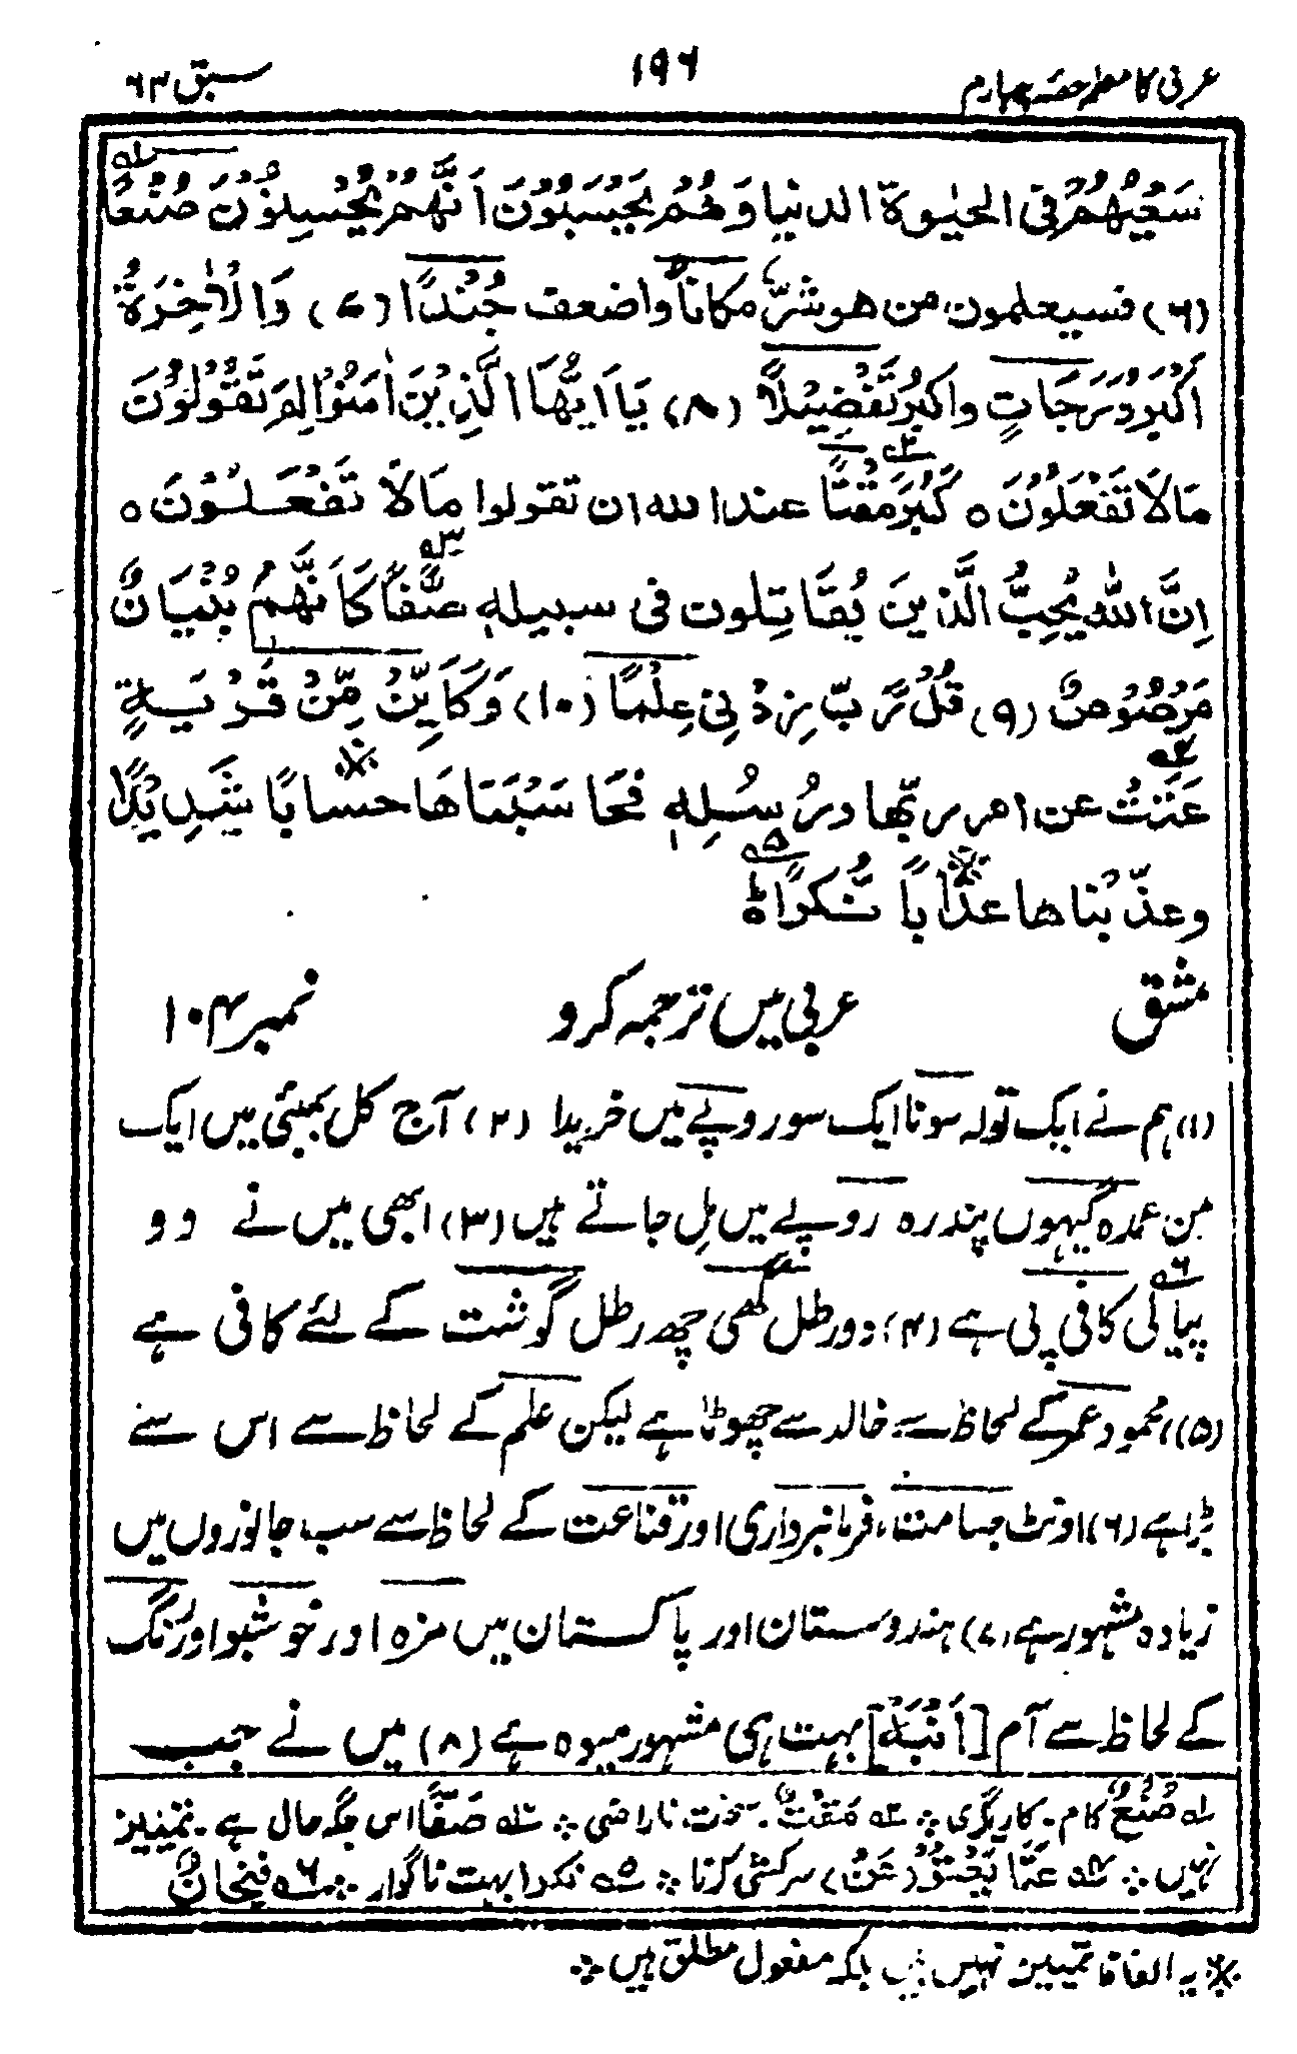 عربی کا معلم حصہ چہارم ۱۹۶ سبق ۶۳
سَعْيُهُمْ فِی الحیٰوۃ الدنیا وَهُمْ يَحْسَبُوْنَ اَنَّهُمْ يُحْسِنُوْنَ صُنْعًا ؎۱
(۶) فسیعلمون من هو شرٌّ مکاناً واضعف جُنْدًا (۷) وَالْاٰخِرَةُ
اَكْبَرُ دَرَجَاتٍ واکبرُ تَفْضِيْلًا (۸) يَا اَيُّهَا الَّذِيْنَ اٰمَنُوْا لِمَ تَقُوْلُوْنَ
مَالَا تَفْعَلُوْنَ ہ كَبُرَ مَقْتًا ؎۲ عند الله ان تقولوا مَالَا تَفْعَلُوْنَ ہ
اِنَّ اللهَ يُحِبُّ الَّذينَ يُقَاتِلون فی سبیلهٖ صَفًّا ؎۳ كَاَنَّهُمْ بُنْيَانٌ
مَرْصُوْصٌ (۹) قُلْ رَّبِّ زِدْنِیْ عِلْمًا (۱۰) وَكَاَيِّنْ مِّنْ قَرْيَةٍ
عَتَتْ ؎۴ عن امر ربّها ورُسُلِهٖ فحَاسَبْنَاهَا حسابًا شَدِيْدًا
وعذّبْناها عذابًا نُّكرًا ؎۵ ط
مشق عربی میں ترجمہ کرو نمبر ۱۰۴
(۱) ہم نے ایک تولہ سونا ایک سو روپے میں خریدا (۲) آج کل بمبئی میں ایک
من عمدہ گیہوں پندرہ روپے میں مل جاتے ہیں (۳) ابھی میں نے دو
پیالی ؎۶ کافی پی ہے (۴) دو رطل گھی چھ رطل گوشت کے لئے کافی ہے
(۵) محمود عمر کے لحاظ سے خالد سے چھوٹا ہے لیکن علم کے لحاظ سے اس سے
بڑا ہے (۶) اونٹ جسامت، فرمانبرداری اور قناعت کے لحاظ سے سب جانوروں میں
زیادہ مشہور ہے (۷) ہندوستان اور پاکستان میں مزہ اور خوشبو اور رنگ
کے لحاظ سے آم [اَنْبَةٌ] بہت ہی مشہور میوہ ہے (۸) میں نے جب
؎۱ صُنْعٌ کام۔ کاریگری ؎۲ مَقْتٌ۔ ناراضی ؎۳ صَفًّا اس جگہ حال ہے۔ تمییز
نہیں ؎۴ عَتَا يَعْتُوْ (عَنْ) سرکشی کرنا ؎۵ نکرا بہت ناگوار ؎۶ فِنجانٌ
※ یہ الفاظ تمییز نہیں ہیں بلکہ مفعول مطلق ہیں